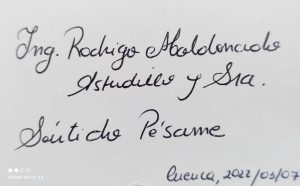 Ing. Rodrigo Maldonado
Astudillo y Sra.
Sentido Pésame
Cuenca, 2022/03/07